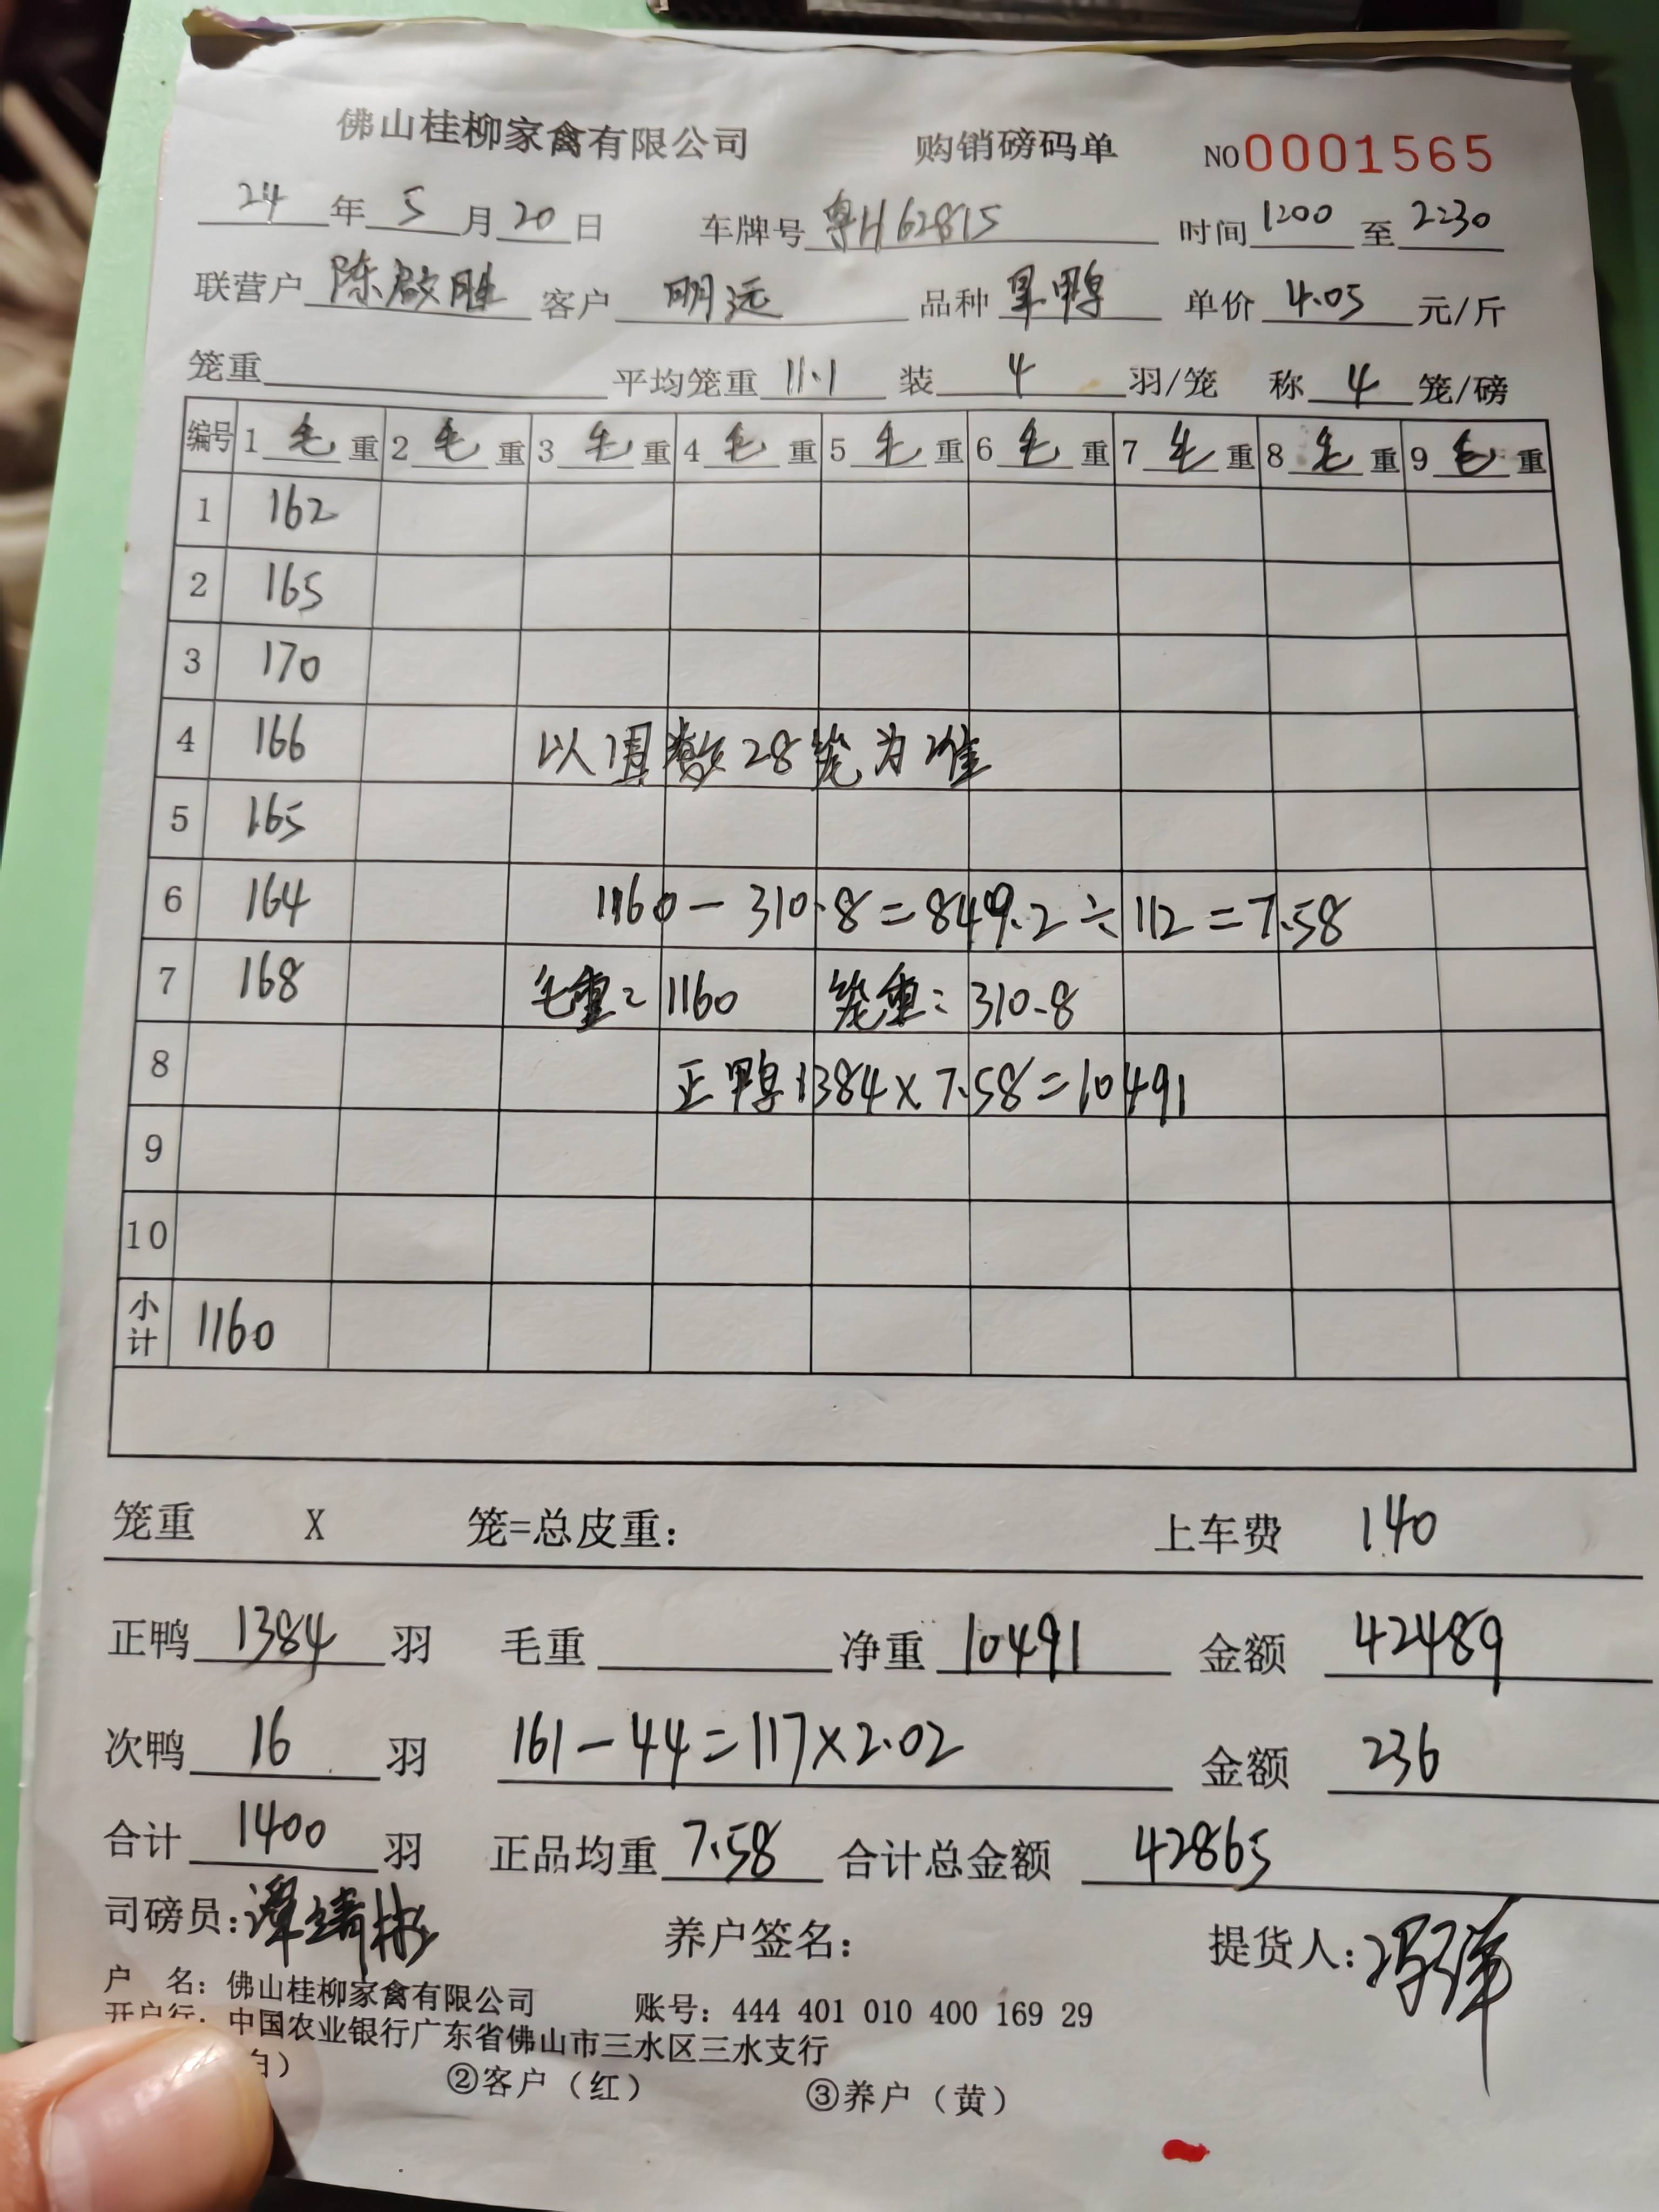 佛山桂柳家禽有限公司 购销磅码单 NO 0001565
24 年 5 月 20 日 车牌号 粤H62815 时间 1200 至 2230
联营户 陈啟胜 客户 明远 品种 旱鸭 单价 4.05 元/斤
笼重 平均笼重 11.1 装 4 羽/笼 称 4 笼/磅
编号 1 毛 重 2 毛 重 3 毛 重 4 毛 重 5 毛 重 6 毛 重 7 毛 重 8 毛 重 9 毛 重
1 162
2 165
3 170
4 166 以 数 28 笼为准
5 165
6 164 1160-310.8=849.2÷112=7.58
7 168 毛重=1160 笼重:310.8
8 正鸭1384×7.58=10491
9
10
小计 1160
笼重 X 笼=总皮重: 上车费 140
正鸭 1384 羽 毛重 净重 10491 金额 42489
次鸭 16 羽 161-44=117×2.02 金额 236
合计 1400 羽 正品均重 7.58 合计总金额 42865
司磅员:谭靖彬 养户签名: 提货人:
户 名:佛山桂柳家禽有限公司 账号:444 401 010 400 169 29
开户行:中国农业银行广东省佛山市三水区三水支行
白) ②客户(红) ③养户(黄)